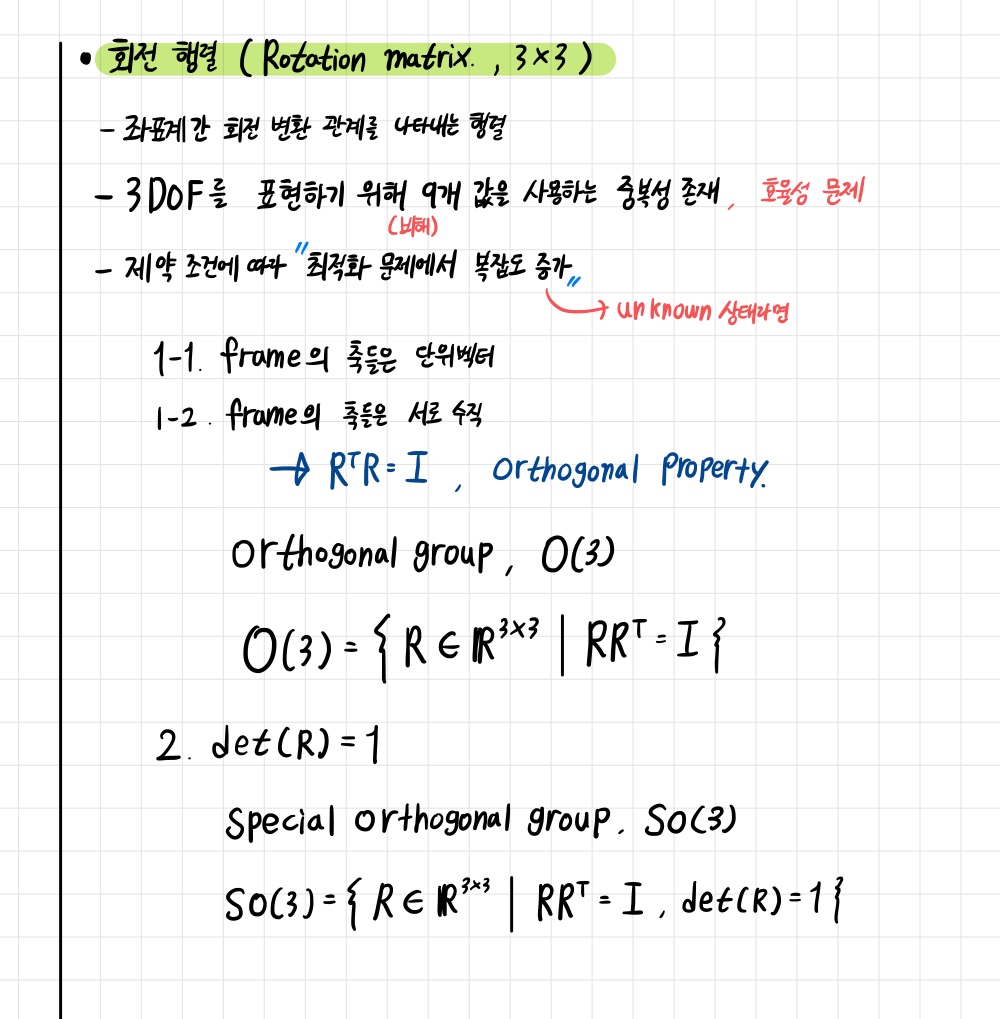 • 회전 행렬 (Rotation matrix. , 3×3)
- 좌표계간 회전 변환 관계를 나타내는 행렬
- 3DoF를 표현하기 위해 9개 값을 사용하는 중복성 존재, 효율성 문제
(비해)
- 제약 조건에 따라 "최적화 문제에서 복잡도 증가"
→ unknown 상태라면
1-1. frame의 축들은 단위벡터
1-2. frame의 축들은 서로 수직
→ RᵀR = I , Orthogonal Property.
Orthogonal group, O(3)
O(3) = { R ∈ ℝ³ˣ³ | RRᵀ = I }
2. det(R) = 1
Special orthogonal group. SO(3)
SO(3) = { R ∈ ℝ³ˣ³ | RRᵀ = I , det(R) = 1 }